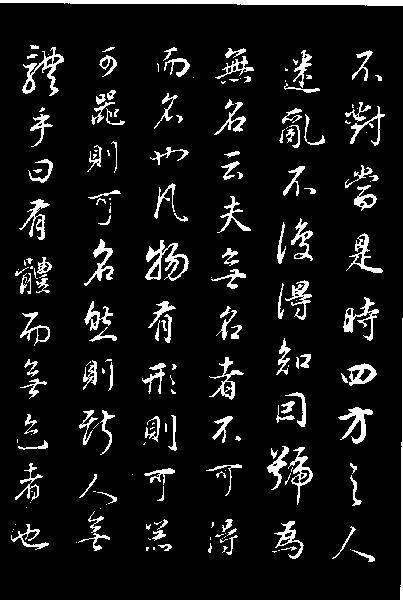 不對當是時四方之人
迷亂不復得知因號為
無名云夫無名者不可得
而名也凡物有形則可器
可器則可名然則斯人無
體乎曰有體而無迹者也